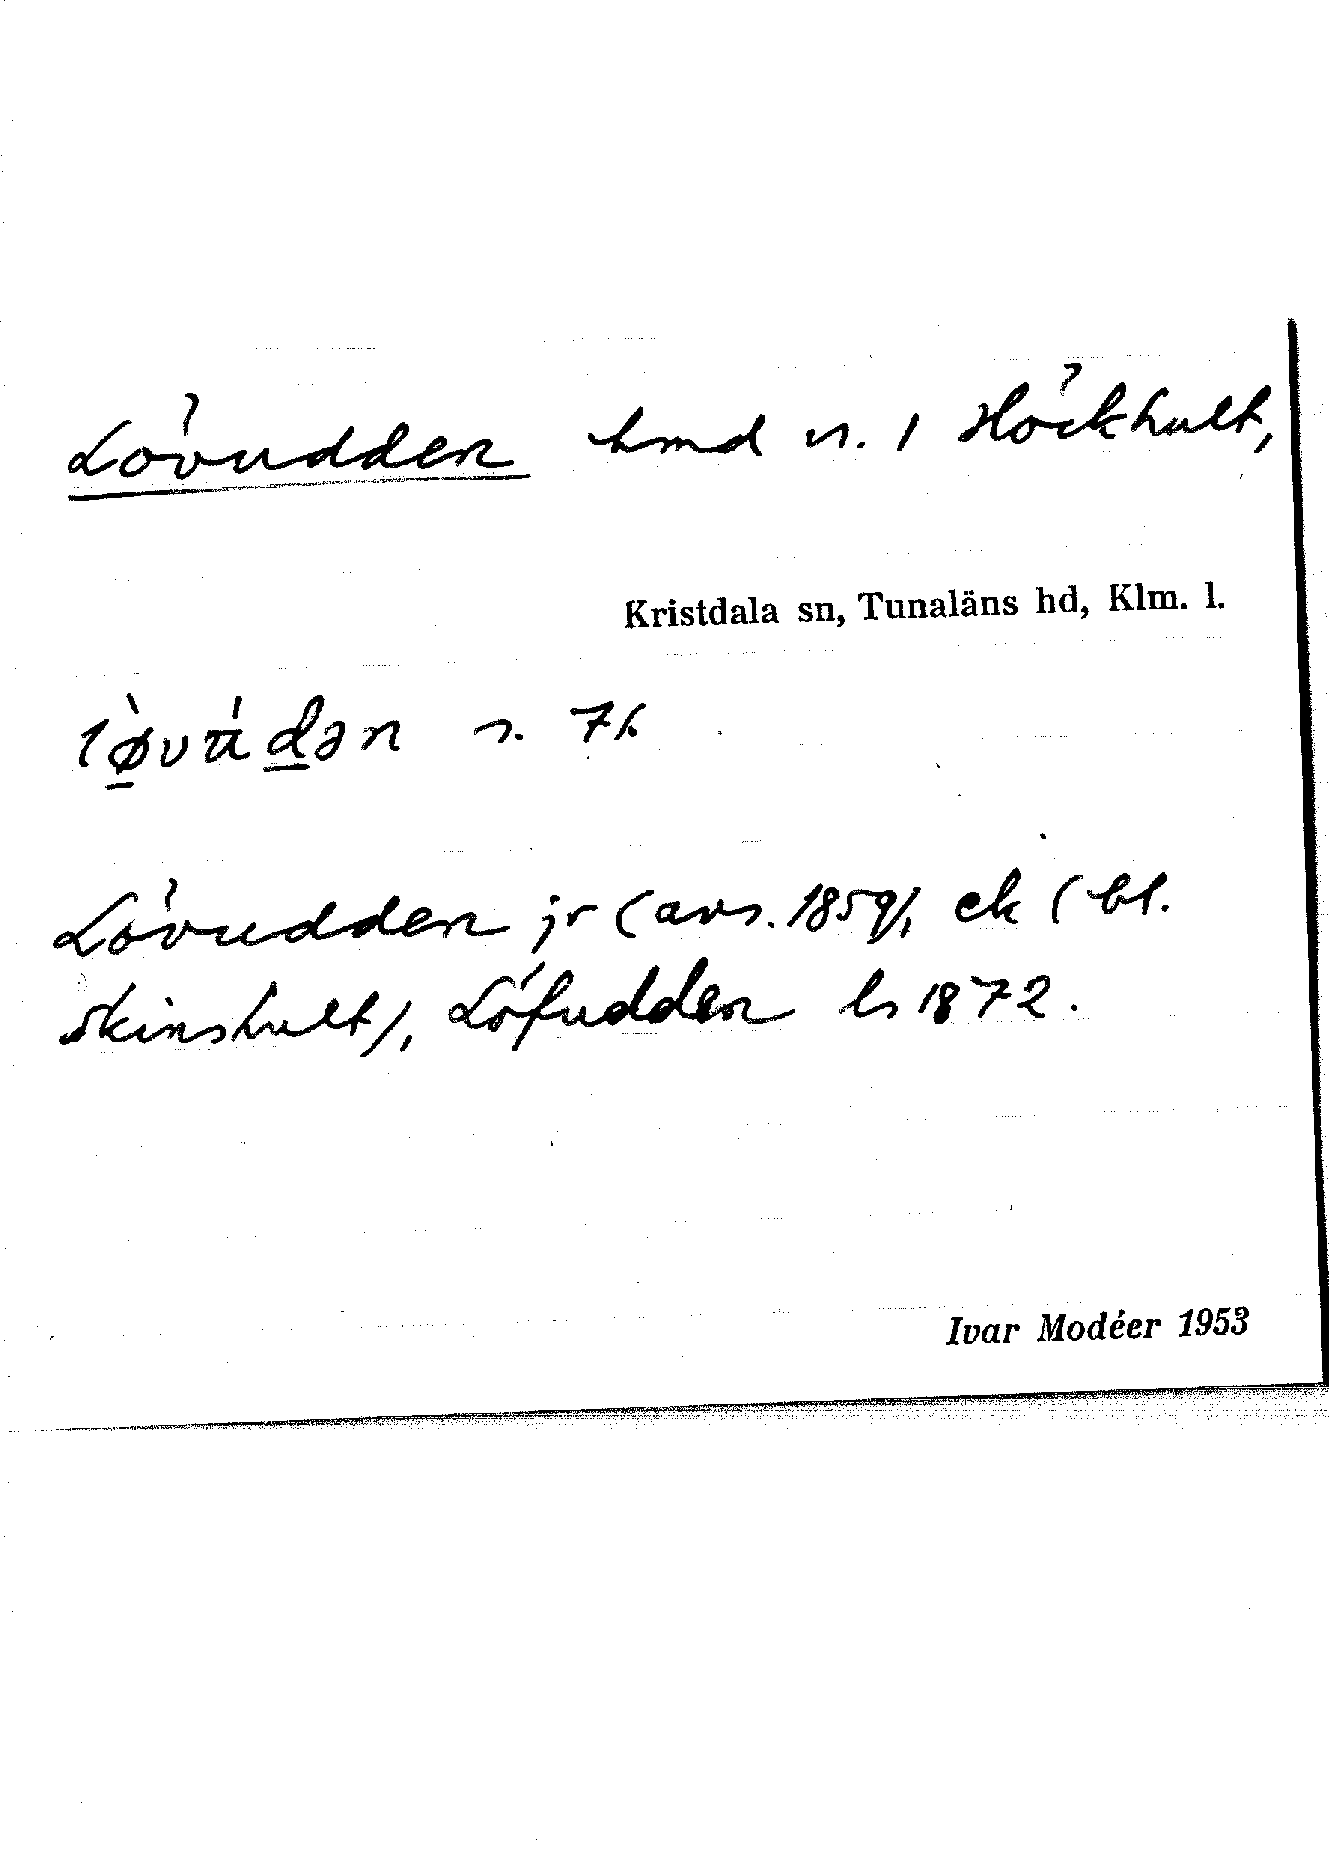 Lövudden hmd n. 1 Höckhult,
Kristdala sn, Tunaläns hd, Klm. l.
lø̀vú̶dən n. 7h
Lövudden jr (avs. 1859), ek (bl.
Skinshult), Löfudden ls 1872.
Ivar Modéer 1953